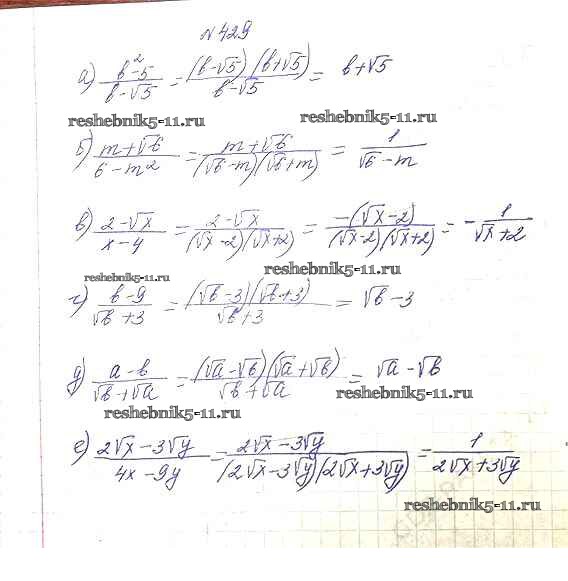 №429
а) (b²-5)/(b-√5) = ((b-√5)(b+√5))/(b-√5) = b+√5
reshebnik5-11.ru reshebnik5-11.ru
б) (m+√6)/(6-m²) = (m+√6)/((√6-m)(√6+m)) = 1/(√6-m)
в) (2-√x)/(x-4) = (2-√x)/((√x-2)(√x+2)) = (-(√x-2))/((√x-2)(√x+2)) = -1/(√x+2)
reshebnik5-11.ru reshebnik5-11.ru
г) (b-9)/(√b+3) = ((√b-3)(√b+3))/(√b+3) = √b-3
д) (a-b)/(√b+√a) = ((√a-√b)(√a+√b))/(√b+√a) = √a-√b
reshebnik5-11.ru reshebnik5-11.ru
е) (2√x-3√y)/(4x-9y) = (2√x-3√y)/((2√x-3√y)(2√x+3√y)) = 1/(2√x+3√y)
reshebnik5-11.ru